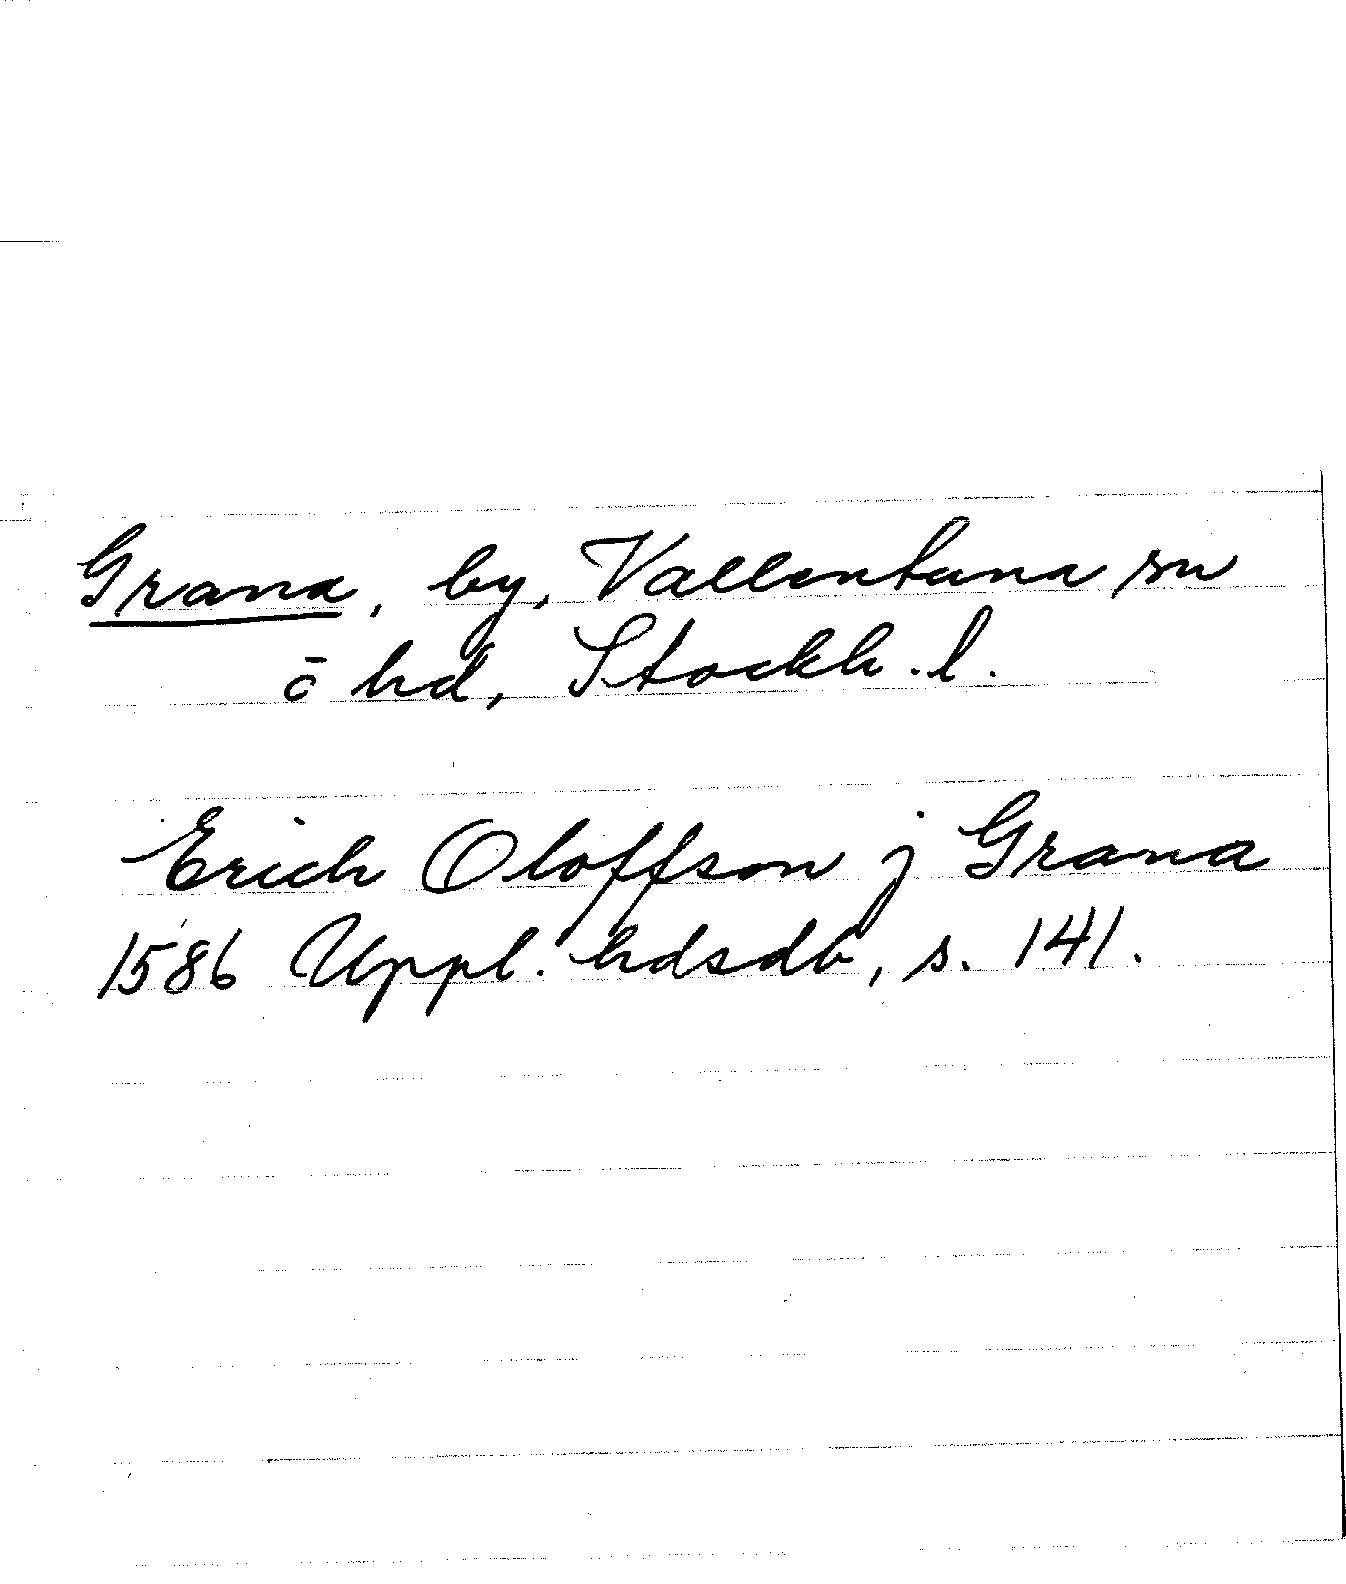 Grana, by, Vallentuna sn
ō hd, Stockh. l.
Erich Oloffson j Grana
1586 Uppl. hdsdb, s. 141.